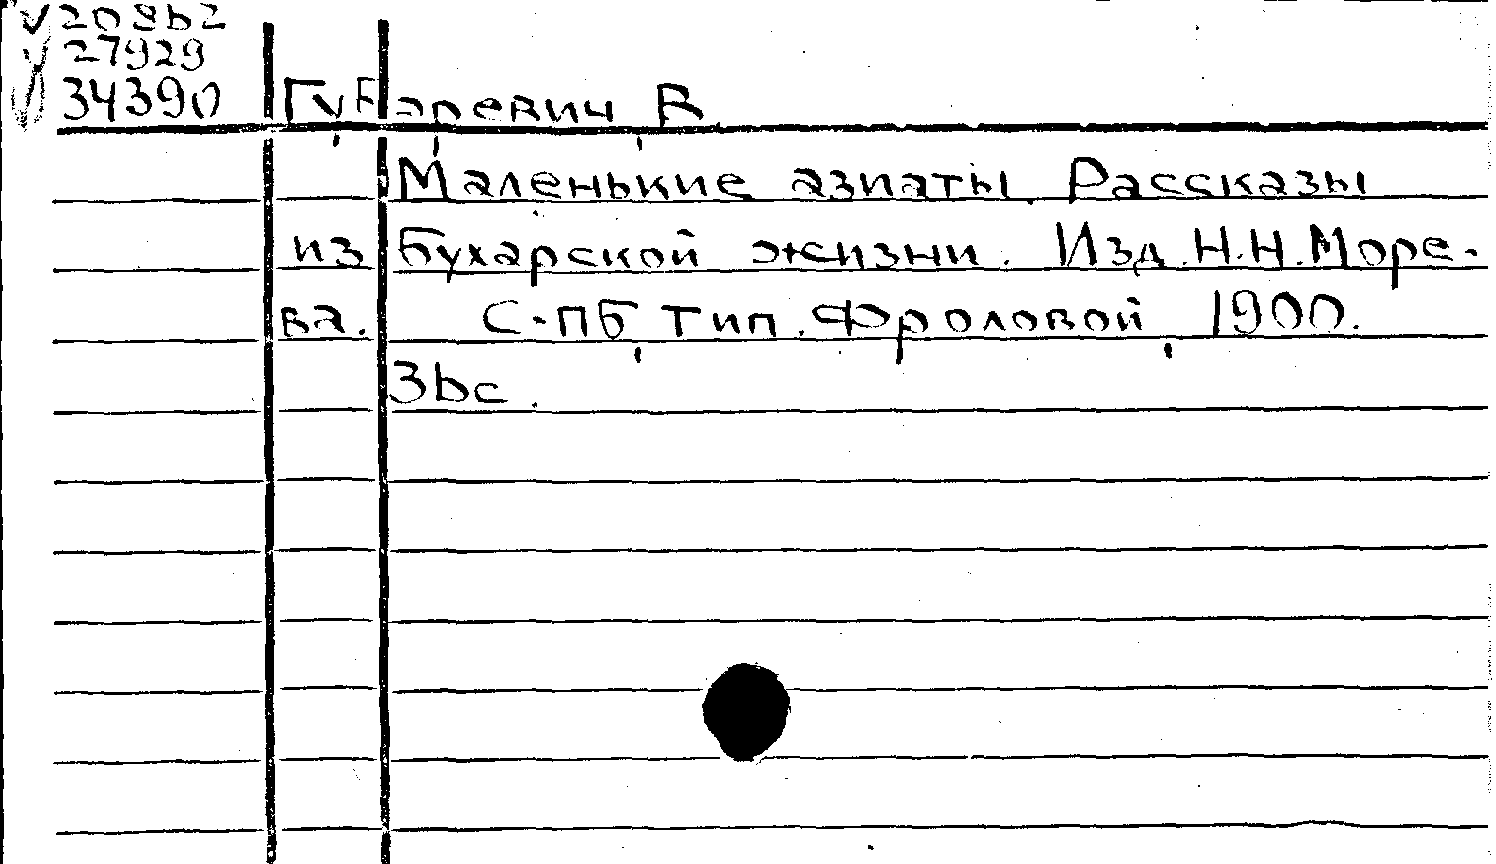 20862
27929
34390 Губаревич В.
Маленькие азиаты. Рассказы
из Бухарской жизни. Изд. Н.Н. Море-
ва. С-ПБ, тип. Фроловой, 1900.
36с.